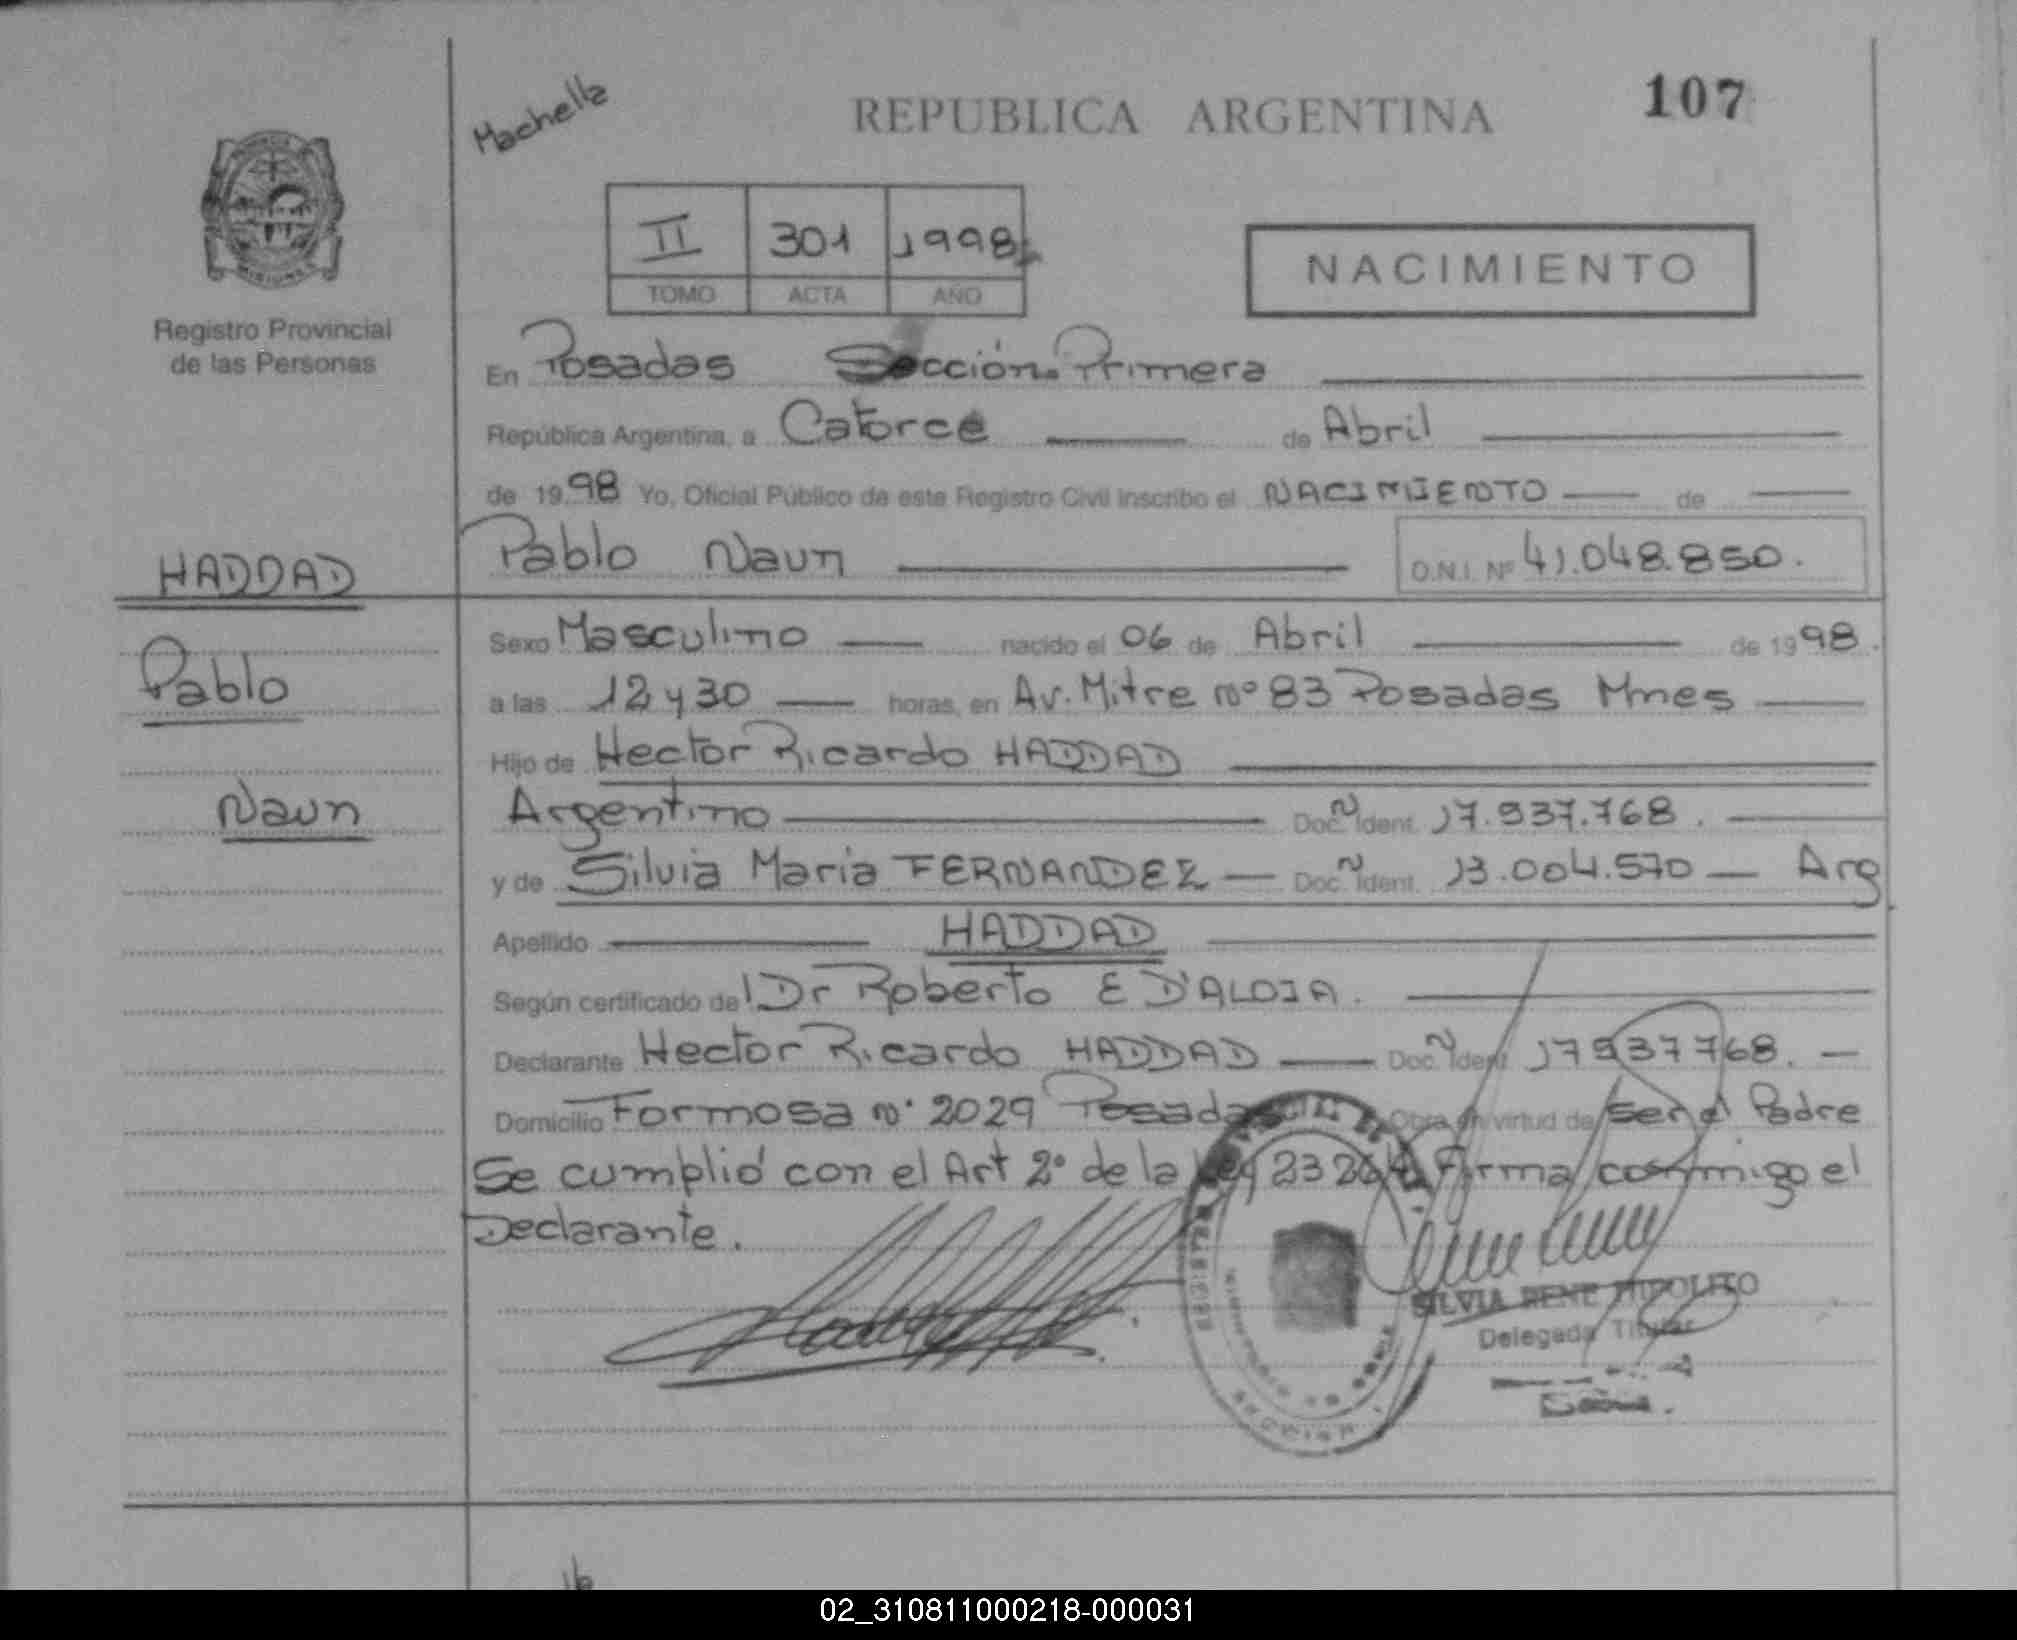 Machella
REPUBLICA ARGENTINA
107
II 301 1998
TOMO ACTA AÑO
NACIMIENTO
MISIONES
Registro Provincial
de las Personas
En Posadas Sección Primera
República Argentina, a Catorce de Abril
de 1998 Yo, Oficial Público de este Registro Civil inscribo el NACIMIENTO de
HADDAD
Pablo Naun D.N.I. Nº 41.048.850.
Sexo Masculino nacido el 06 de Abril de 1998.
Pablo
a las 12 y 30 horas, en Av. Mitre nº 83 Posadas Mnes
Hijo de Hector Ricardo HADDAD
Naun
Argentino Doc. Ñ Ident. 17.937.768.
y de Silvia Maria FERNANDEZ Doc. Ñ Ident. 13.004.570 Arg
Apellido HADDAD
Según certificado del Dr Roberto E D'ALOIA.
Declarante Hector Ricardo HADDAD Doc. Ñ Ident. 17937768.
Domicilio Formosa nº 2029 Posadas Obra en virtud de ser el Padre
Se cumplió con el Art 2º de la Ley 23264 Firma conmigo el
Declarante.
SILVIA RENE HIPOLITO
Delegada Titular
02_310811000218-000031